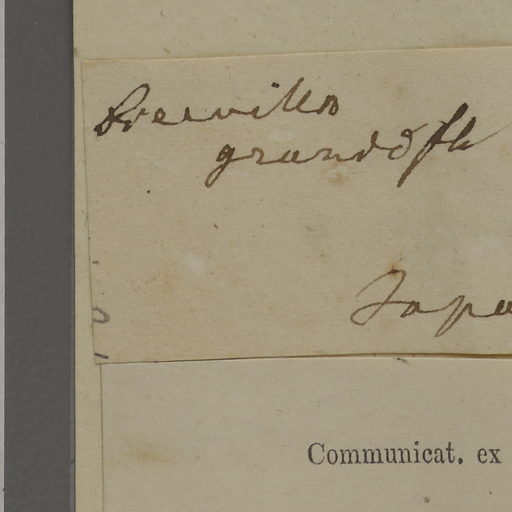 Brevillea
grandifl
Japa
Communicat. ex